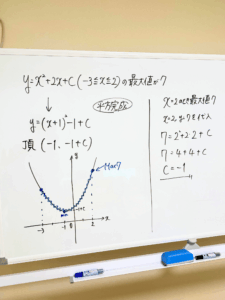 y=x²+2x+c (-3≦x≦2)の最大値が7
平方完成
y=(x+1)²-1+c
頂(-1、-1+c)
Max7
-3
-1
2
x
x=2のとき最大値7
x=2,y=7を代入
7=2²+2・2+c
7=4+4+c
c=-1